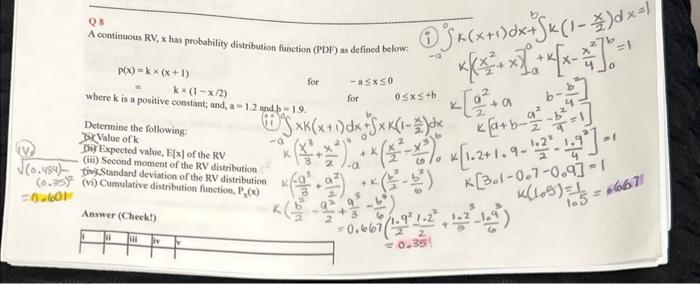 Q 8
A continuous RV, x has probability distribution function (PDF) as defined below:
p(x) = k × (x + 1) for - a ≤ x ≤ 0
= k × (1 - x/2) for 0 ≤ x ≤ +b
where k is a positive constant; and, a = 1.2 and b = 1.9.
Determine the following:
(i) Value of k
(ii) Expected value, E[x] of the RV
(iii) Second moment of the RV distribution
(iv) Standard deviation of the RV distribution
(vi) Cumulative distribution function, Pₓ(x)
Answer (Check!)
i ii iii iv v
(i) ∫₋ₐ⁰ K(x+1)dx + ∫₀ᵇ K(1-x/2)dx=1
K[x²/2 + x]₋ₐ⁰ + K[x - x²/4]₀ᵇ =1
K[a²/2 + a b - b²/4]
K[a+b - a²/2 - b²/4 = 1]
K[1.2+1.9 - 1.2²/2 - 1.9²/4] = 1
K[3.1-0.7-0.9] = 1
K(1.5)=1/1.5 = 0.667
(ii) ∫₋ₐ⁰ xK(x+1)dx + ∫₀ᵇ xK(1-x/2)dx
K(x³/3 + x²/2)₋ₐ⁰ + K(x²/2 - x³/6)₀ᵇ
K(-a³/3 + a²/2) + K(b²/2 - b³/6)
K(b²/2 - a²/2 + a³/3 - b³/6)
= 0.667(1.9²/2 - 1.2²/2 + 1.2³/3 - 1.9³/6)
= 0.35
(iv)
√(0.484)-
(0.35)²
=0.601